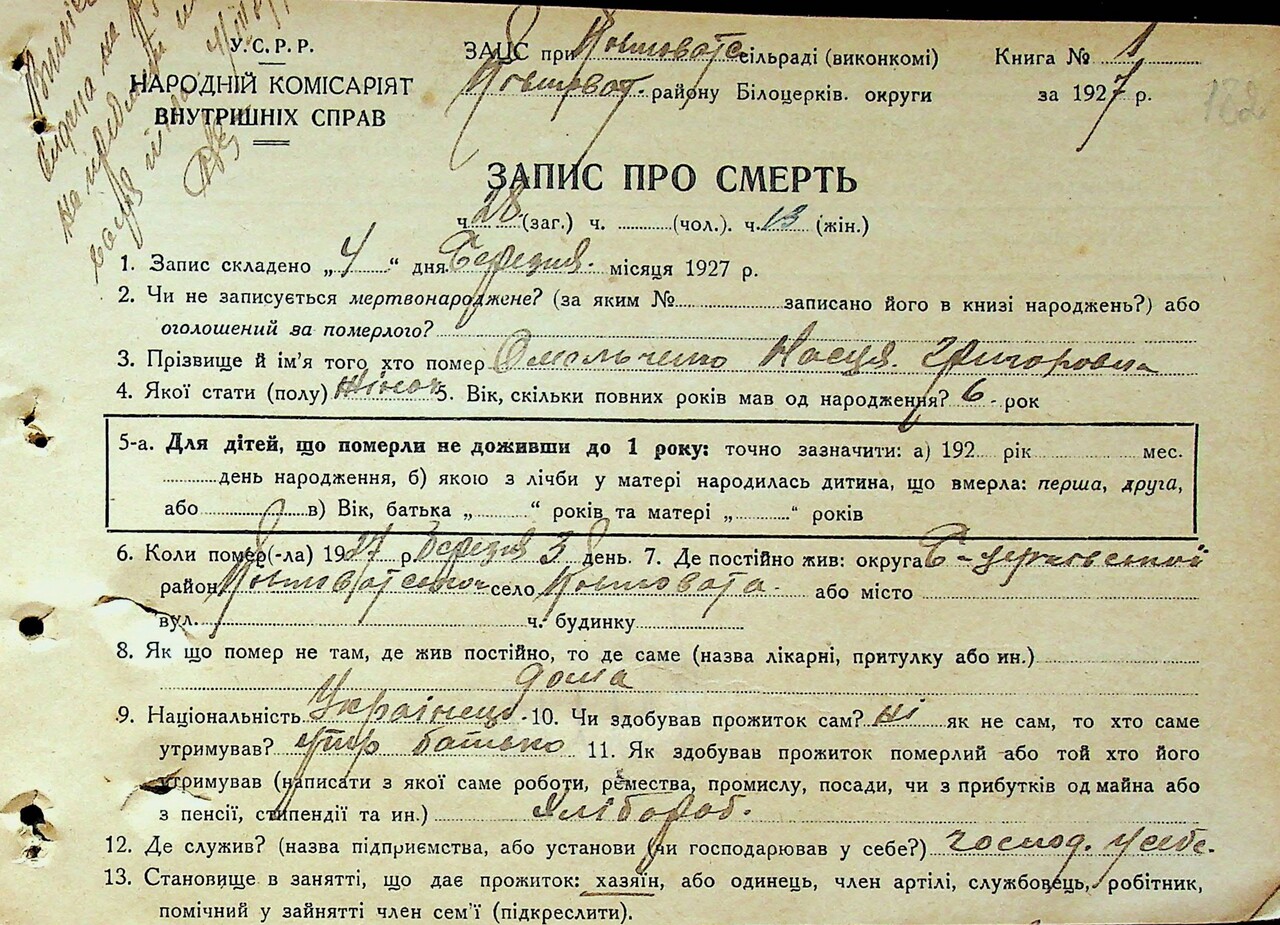 У.С.Р.Р.
НАРОДНІЙ КОМІСАРІЯТ
ВНУТРИШНІХ СПРАВ
ЗАЦС при Ковшовата сільраді (виконкомі)
Ковшоват. району Білоцерків. округи
Книга № 1
за 1927 р.
182
ЗАПИС ПРО СМЕРТЬ
ч. 28 (заг.) ч. (чол.). ч. 13 (жін.)
1. Запис складено „4“ дня Березня місяця 1927 р.
2. Чи не записується мертвонароджене? (за яким № записано його в книзі народжень?) або
оголошений за померлого?
3. Прізвище й ім'я того хто помер Омельченко Настя Григоровна
4. Якої стати (полу) жіноч 5. Вік, скільки повних років мав од народження? 6 рок
5-а. Для дітей, що померли не доживши до 1 року: точно зазначити: а) 192 рік мес.
день народження, б) якою з лічби у матері народилась дитина, що вмерла: перша, друга,
або в) Вік, батька „ “ років та матері „ “ років
6. Коли помер(-ла) 1927 р. Березня 3 день. 7. Де постійно жив: округа Б-церковської
район Ковшоватської село Ковшовата або місто
вул. ч. будинку
8. Як що помер не там, де жив постійно, то де саме (назва лікарні, притулку або ин.)
дома
9. Національність Українець 10. Чи здобував прожиток сам? ні як не сам, то хто саме
утримував? утр батько 11. Як здобував прожиток померлий або той хто його
утримував (написати з якої саме роботи, ремества, промислу, посади, чи з прибутків од майна або
з пенсії, стипендії та ин.) Хлібороб.
12. Де служив? (назва підприємства, або установи чи господарював у себе?) господ. у себе.
13. Становище в занятті, що дає прожиток: хазяїн, або одинець, член артілі, службовець, робітник,
помічний у зайнятті член сем'ї (підкреслити).